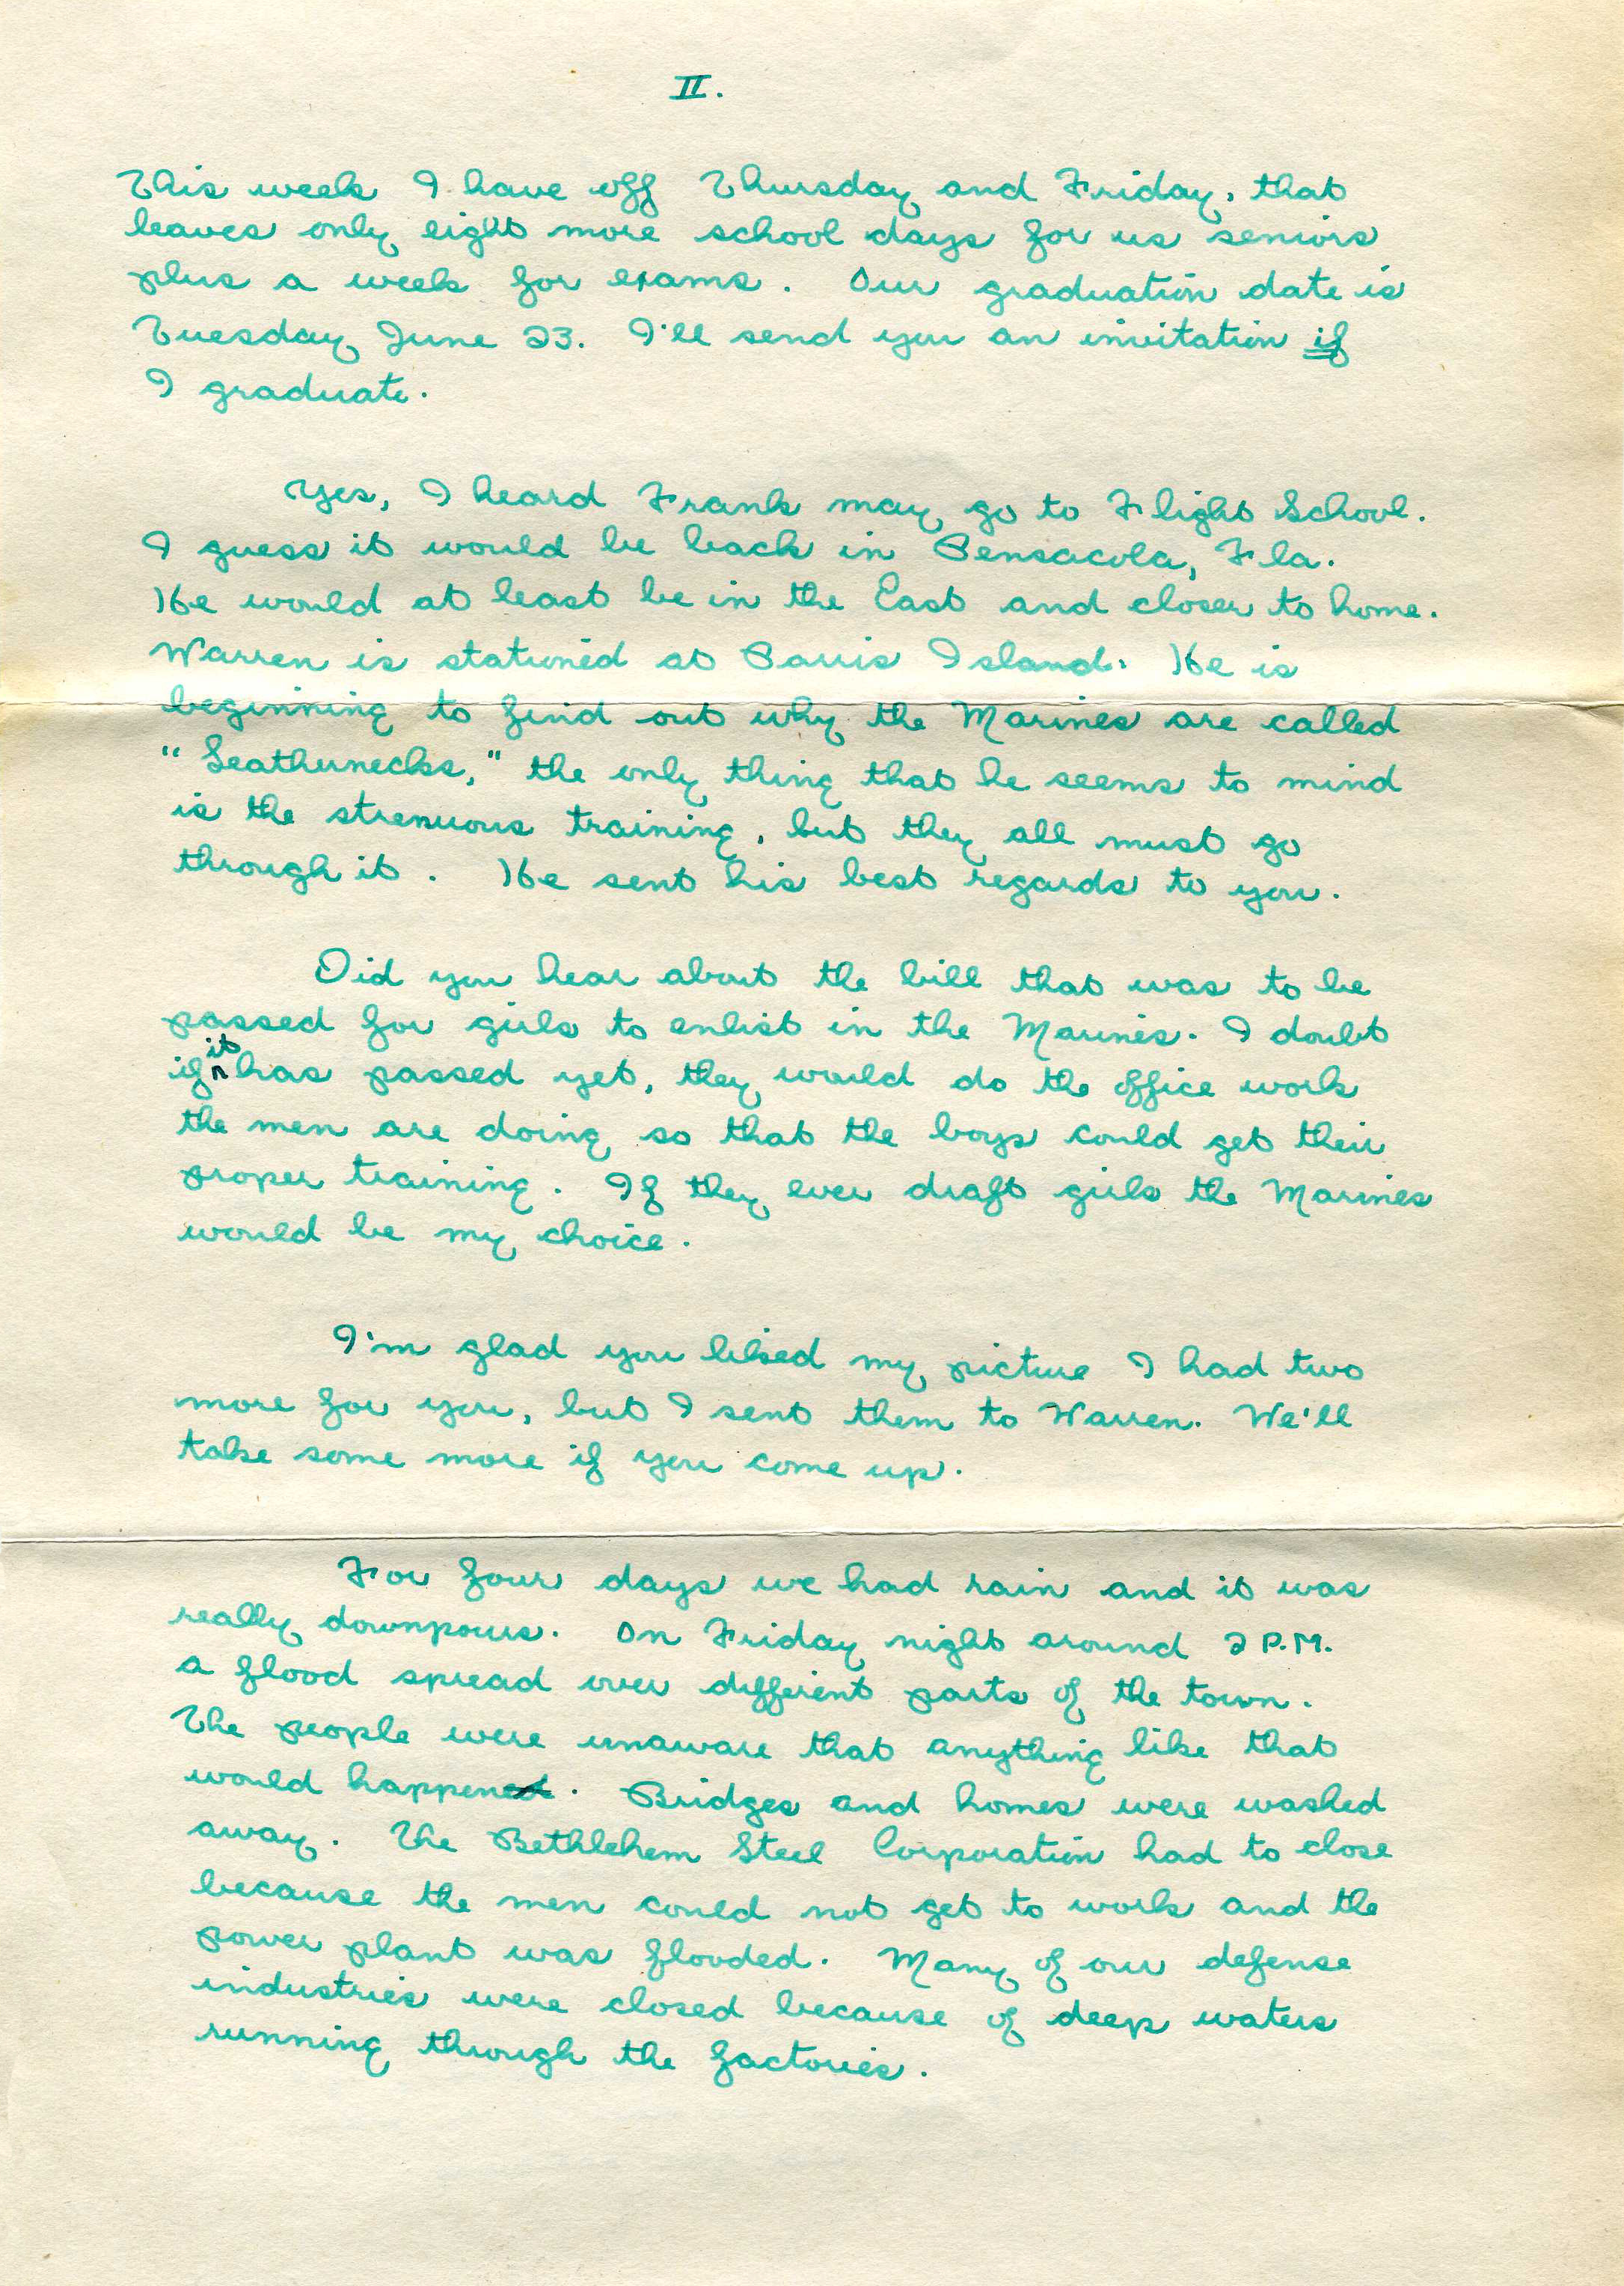 II.
This week I have off Thursday and Friday, that
leaves only eight more school days for us seniors
plus a week for exams. Our graduation date is
Tuesday June 23. I'll send you an invitation if
I graduate.
Yes, I heard Frank may go to Flight School.
I guess it would be back in Pensacola, Fla.
He would at least be in the East and closer to home.
Warren is stationed at Parris Island. He is
beginning to find out why the Marines are called
"Leathernecks," the only thing that he seems to mind
is the strenuous training, but they all must go
through it. He sent his best regards to you.
Did you hear about the bill that was to be
passed for girls to enlist in the Marines. I doubt
if it has passed yet, they would do the office work
the men are doing so that the boys could get their
proper training. If they ever draft girls the Marines
would be my choice.
I'm glad you liked my picture I had two
more for you, but I sent them to Warren. We'll
take some more if you come up.
For four days we had rain and it was
really downpours. On Friday night around 2 P.M.
a flood spread over different parts of the town.
The people were unaware that anything like that
would happened. Bridges and homes were washed
away. The Bethlehem Steel Corporation had to close
because the men could not get to work and the
power plant was flooded. Many of our defense
industries were closed because of deep waters
running through the factories.